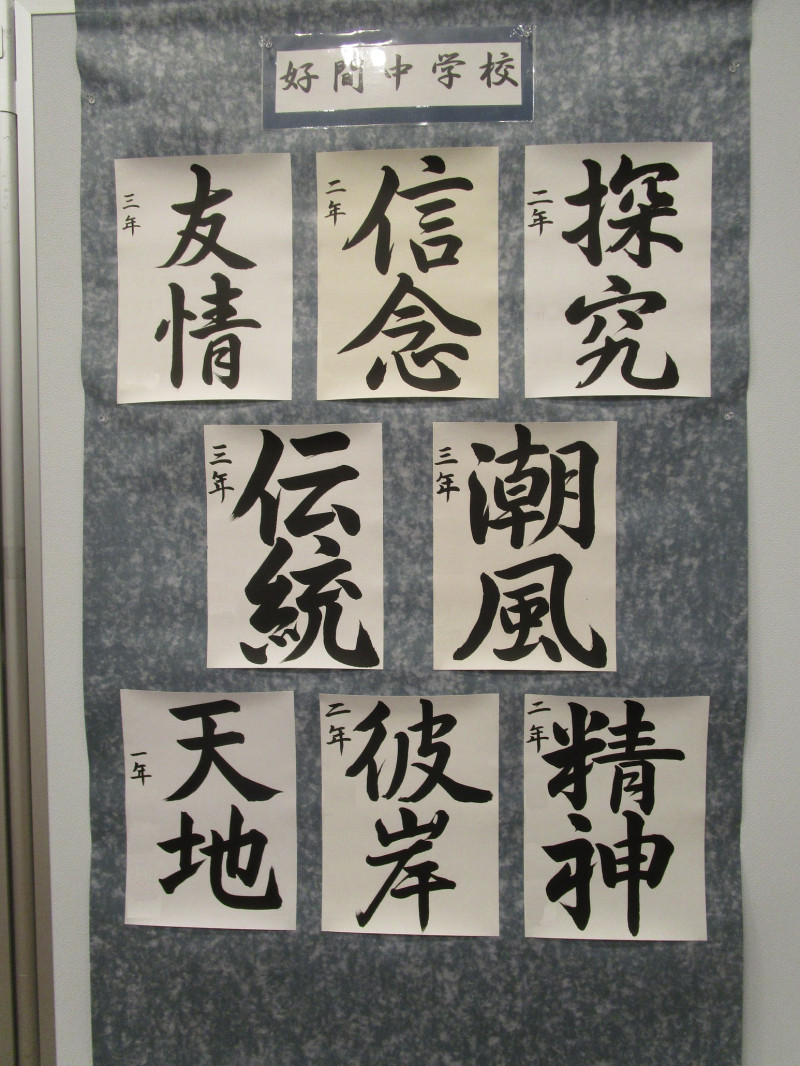 好間中学校
探究
二年
信念
二年
友情
三年
潮風
三年
伝統
三年
精神
二年
彼岸
二年
天地
一年